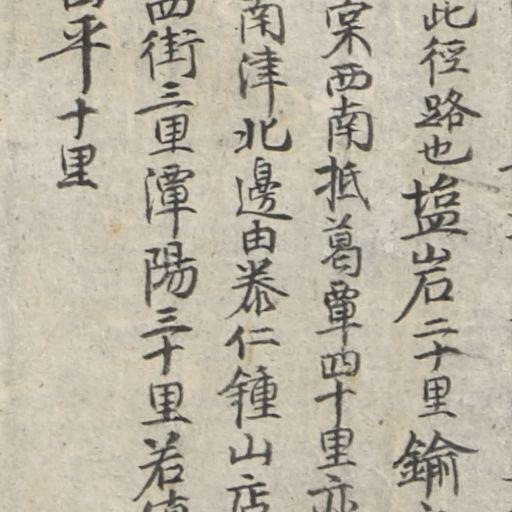 此徑路也塩岩二十里鍮
寀西南抵葛覃四十里亦
南津北邊由泰仁鍾山店
四街三里潭陽三十里若
平十里